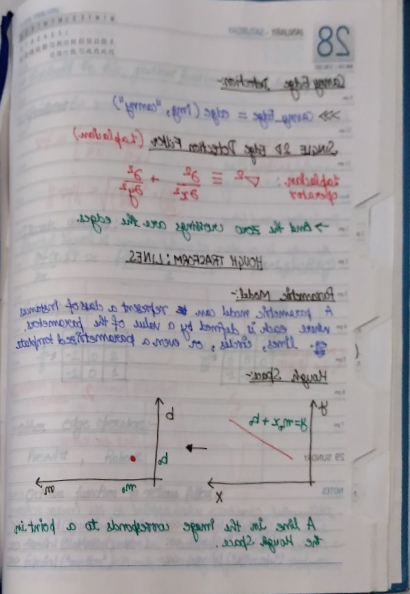 28
JANUARY - SATURDAY
Canny Edge Detection:-
>>> canny_Edge = edge (img, "canny")
SINGLE 2D Edge Detection Filter (Laplacian)
Laplacian operator: ∇² ≡ ∂²/∂x² + ∂²/∂y²
→ And the zero crossings are the edges.
HOUGH TRACFORM: LINES
Parametric Model:-
A parametric model can represent a class of instances
where each is defined by a value of the parameters.
eg. lines, circles, or even a parametrized template
Hough Space:-
y
y = m₀x + b₀
x
b
b₀
m₀
m
29 SUNDAY
NOTES
A line in the image corresponds to a point in
the Hough Space.